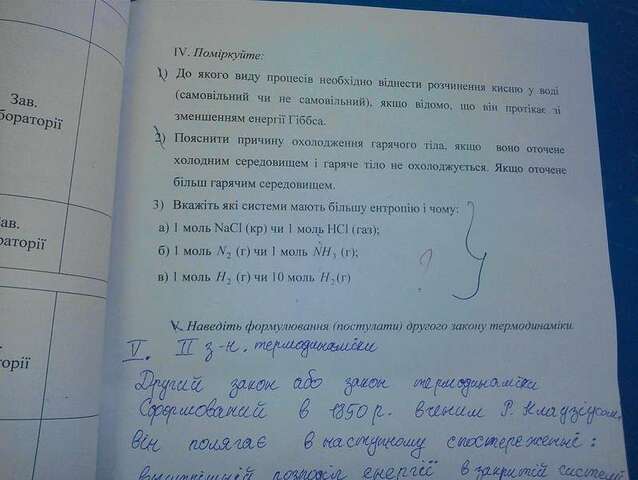 Зав.
бораторії
IV. Поміркуйте:
1) До якого виду процесів необхідно віднести розчинення кисню у воді
(самовільний чи не самовільний), якщо відомо, що він протікає зі
зменшенням енергії Гіббса.
2) Пояснити причину охолодження гарячого тіла, якщо воно оточене
холодним середовищем і гаряче тіло не охолоджується. Якщо оточене
більш гарячим середовищем.
3) Вкажіть які системи мають більшу ентропію і чому:
а) 1 моль NaCl (кр) чи 1 моль HCl (газ);
б) 1 моль N₂ (г) чи 1 моль NH₃ (г);
?
в) 1 моль H₂ (г) чи 10 моль H₂(г)
Зав.
раторії
орії
V. Наведіть формулювання (постулати) другого закону термодинаміки
V. II з-н. термодинаміки
Другий закон або закон термодинаміки
Сформований в 1850 р. вченим Р. Клаузіусом,
він полягає в наступному спостереженні:
розподіл енергії в закритій системі